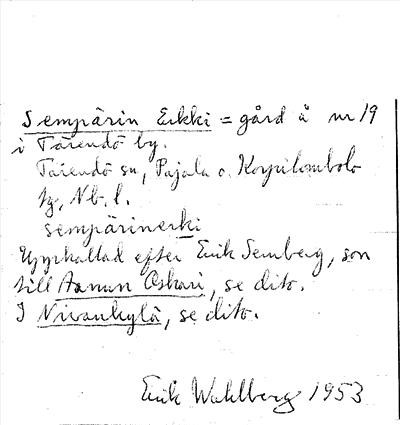 Sempärin Erkki = gård å nr 19
i Tärendö by.
Tärendö sn, Pajala o. Korpilombolo
tg, Nb. l.
sempärinerki
Uppkallad efter Erik Semberg, son
till Aanun Oskari, se dito.
I Nivankylä, se dito.
Erik Wahlberg 1953